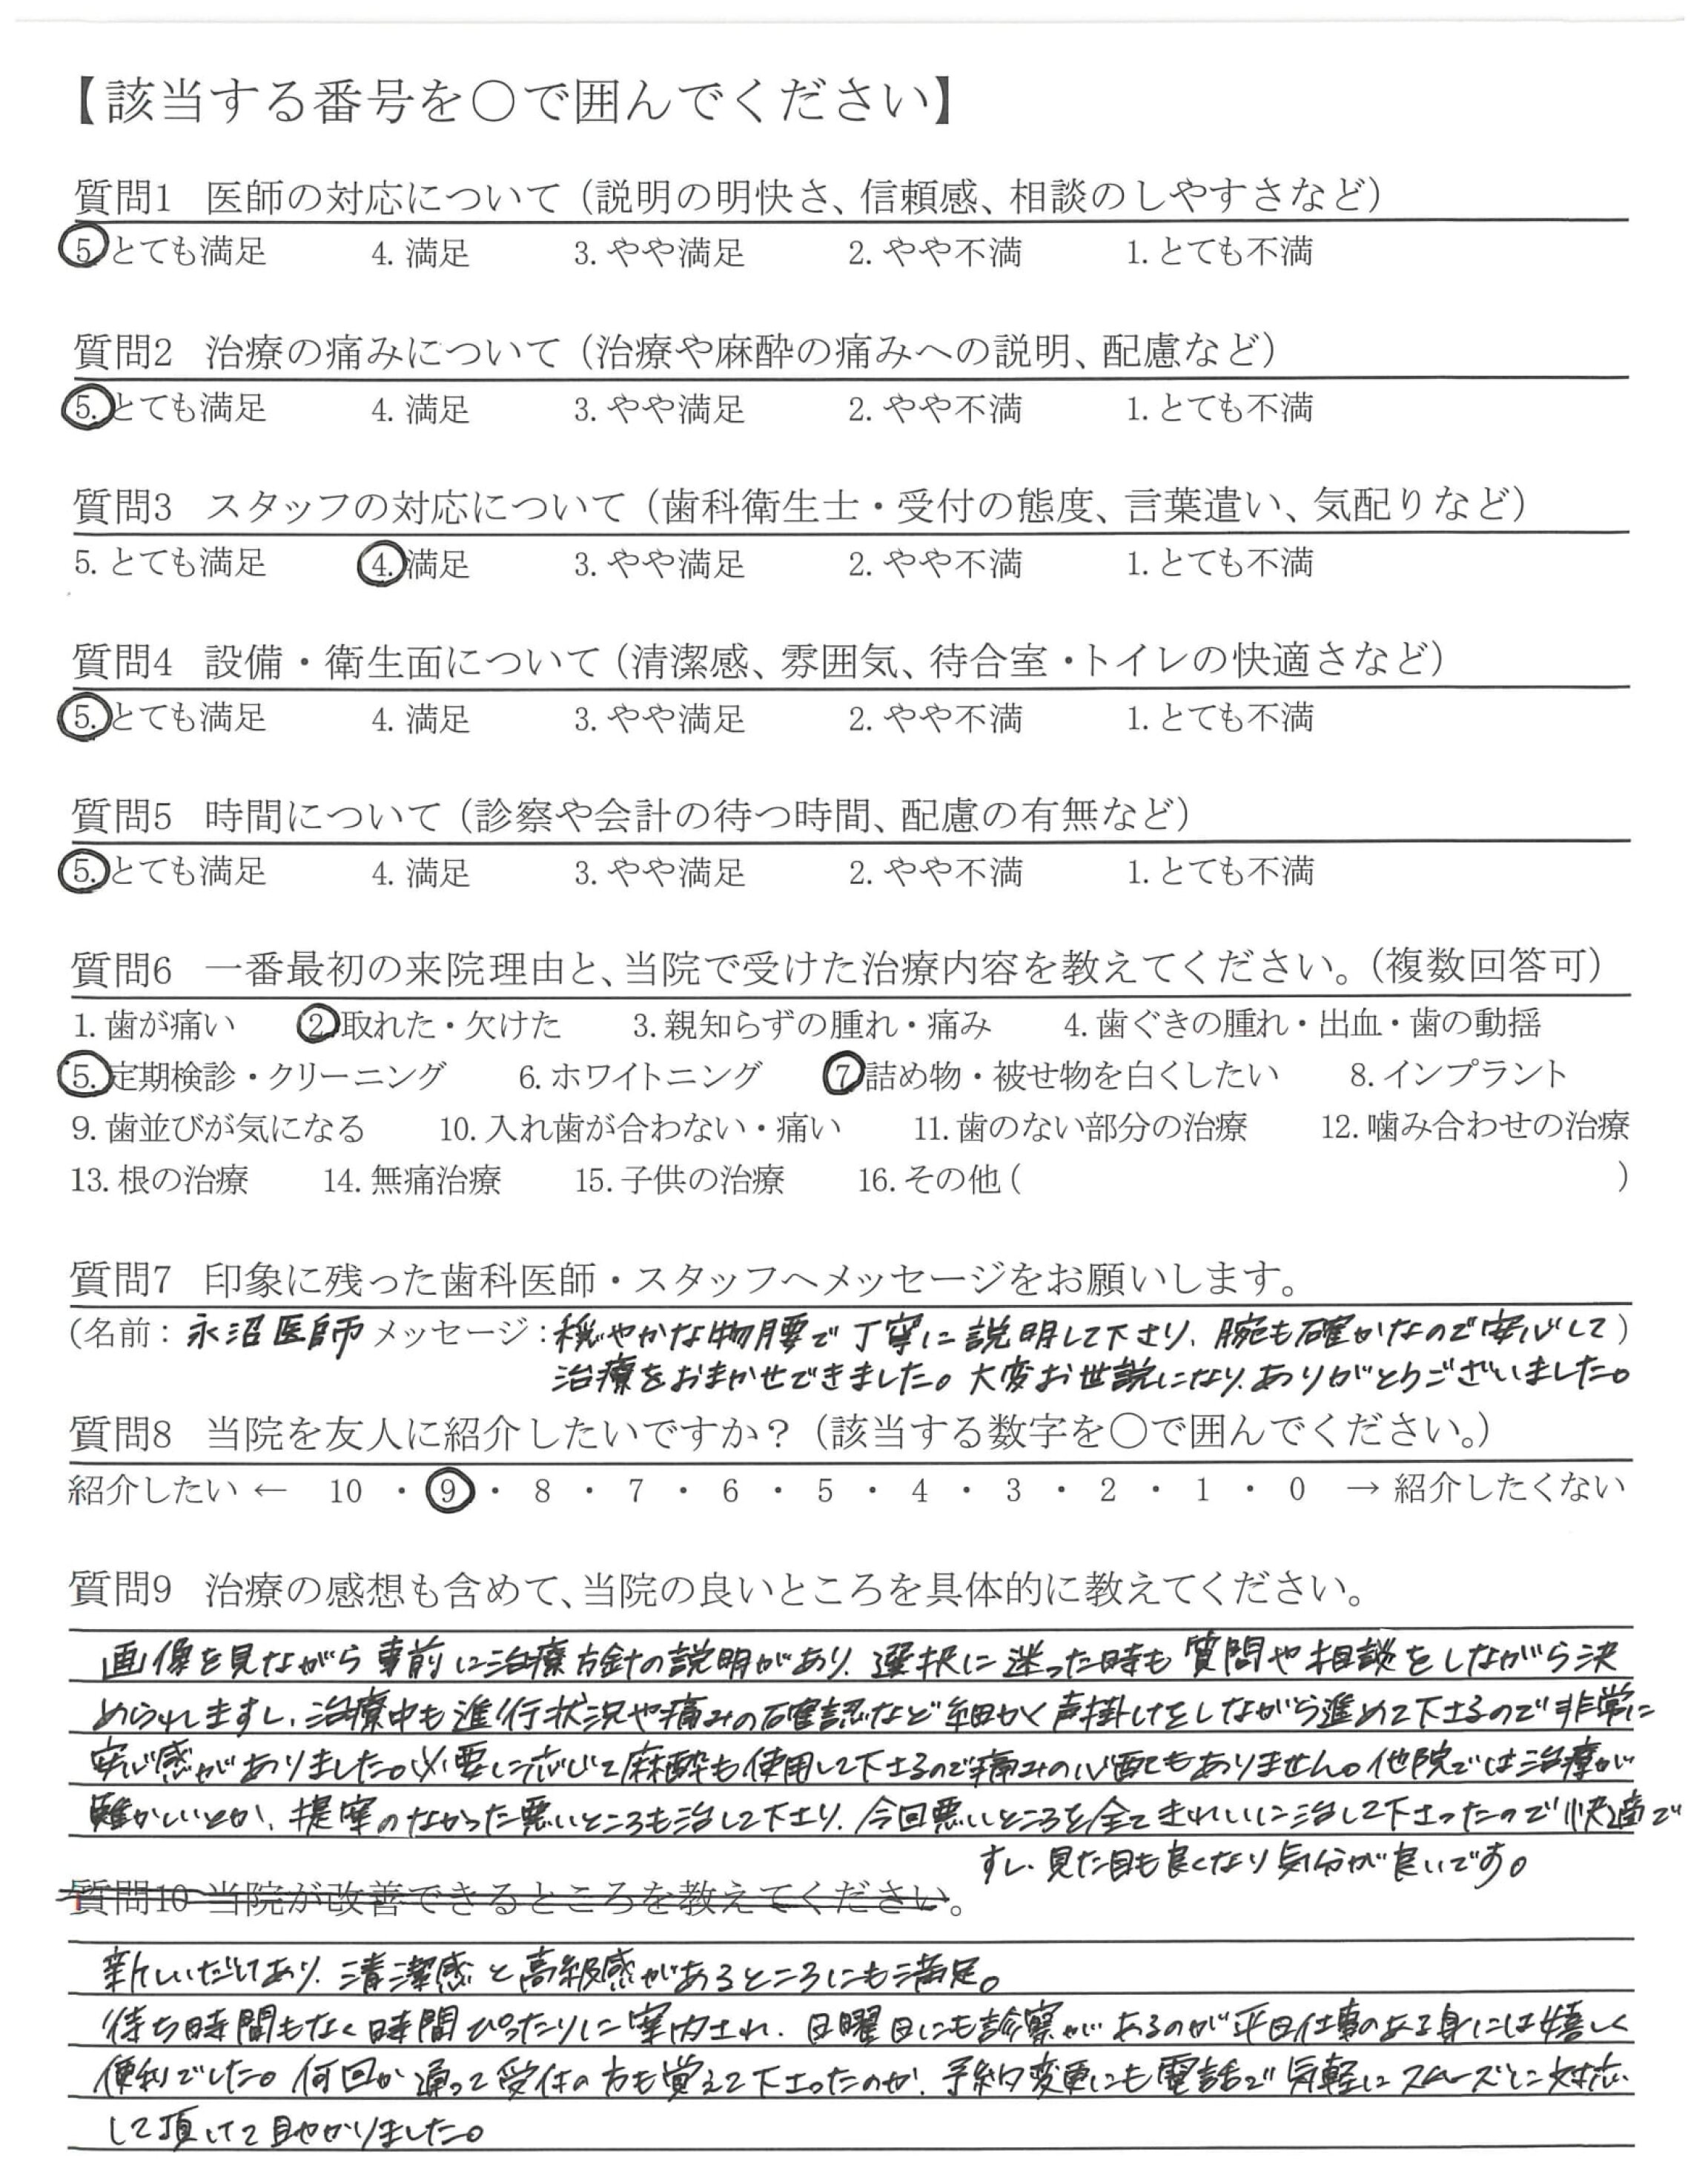 【該当する番号を○で囲んでください】
質問1 医師の対応について（説明の明快さ、信頼感、相談のしやすさなど）
5. とても満足 4. 満足 3. やや満足 2. やや不満 1. とても不満
質問2 治療の痛みについて（治療や麻酔の痛みへの説明、配慮など）
5. とても満足 4. 満足 3. やや満足 2. やや不満 1. とても不満
質問3 スタッフの対応について（歯科衛生士・受付の態度、言葉遣い、気配りなど）
5. とても満足 4. 満足 3. やや満足 2. やや不満 1. とても不満
質問4 設備・衛生面について（清潔感、雰囲気、待合室・トイレの快適さなど）
5. とても満足 4. 満足 3. やや満足 2. やや不満 1. とても不満
質問5 時間について（診察や会計の待つ時間、配慮の有無など）
5. とても満足 4. 満足 3. やや満足 2. やや不満 1. とても不満
質問6 一番最初の来院理由と、当院で受けた治療内容を教えてください。（複数回答可）
1. 歯が痛い 2. 取れた・欠けた 3. 親知らずの腫れ・痛み 4. 歯ぐきの腫れ・出血・歯の動揺
5. 定期検診・クリーニング 6. ホワイトニング 7. 詰め物・被せ物を白くしたい 8. インプラント
9. 歯並びが気になる 10. 入れ歯が合わない・痛い 11. 歯のない部分の治療 12. 噛み合わせの治療
13. 根の治療 14. 無痛治療 15. 子供の治療 16. その他（ ）
質問7 印象に残った歯科医師・スタッフへメッセージをお願いします。
（名前：永沼医師 メッセージ：穏やかな物腰で丁寧に説明して下さり、腕も確かなので安心して）
治療をおまかせできました。大変お世話になり、ありがとうございました。
質問8 当院を友人に紹介したいですか？（該当する数字を○で囲んでください。）
紹介したい ← 10 ・ 9 ・ 8 ・ 7 ・ 6 ・ 5 ・ 4 ・ 3 ・ 2 ・ 1 ・ 0 → 紹介したくない
質問9 治療の感想も含めて、当院の良いところを具体的に教えてください。
画像を見ながら事前に治療方針の説明があり、選択に迷った時も質問や相談をしながら決
められますし、治療中も進行状況や痛みの確認など細かく声掛けをしながら進めて下さるので非常に
安心感がありました。必要に応じて麻酔も使用して下さるので痛みの心配もありません。他院では治療が
難かしいとか、提案のなかった悪いところも治して下さり、今回悪いところを全てきれいに治して下さったので快適で
すし、見た目も良くなり気分が良いです。
質問10 当院が改善できるところを教えてください。
新しいだけあり、清潔感と高級感があるところにも満足。
待ち時間もなく時間ぴったりに案内され、日曜日にも診察があるのが平日仕事のある身には嬉しく
便利でした。何回か通って受付の方も覚えて下さったのか、予約変更にも電話で気軽にスムーズに対応
して頂けて助かりました。